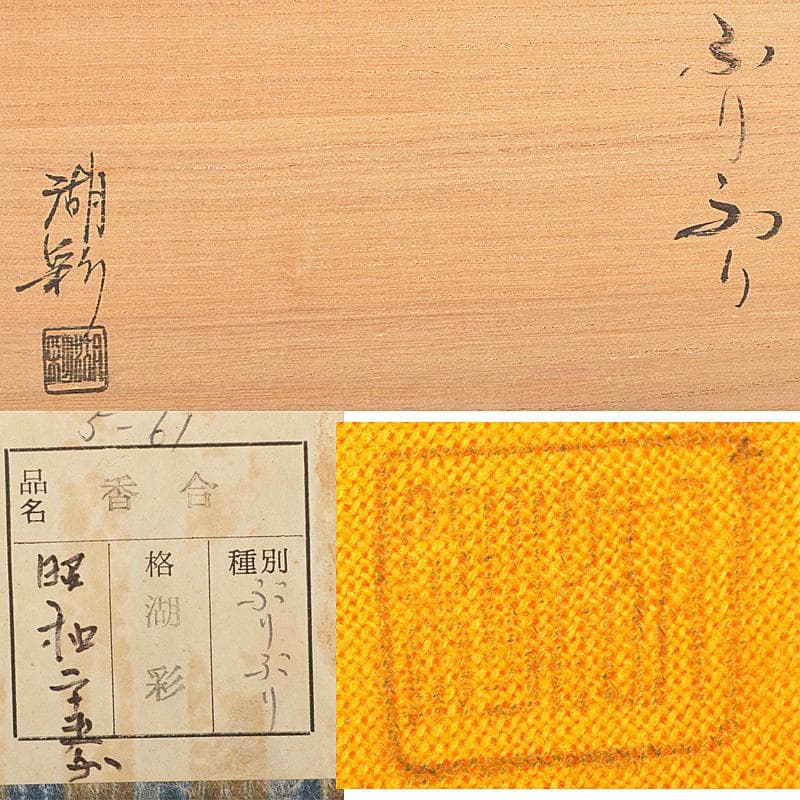 ふりふり
湖彩
5-61
品名
香合
種別
ぶりぶり
格
湖彩
昭和